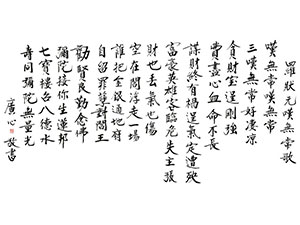 羅狀元嘆無常歌
嘆無常嘆無常
三嘆無常好凄凉
貪財寶逞剛強
費盡心血命不長
謀財終有禍逞氣定遭殃
富豪英雄客臨危失主張
財也丢氣也傷
空在閻浮走一場
誰把金銀過地府
自留罪孽對閻王
勸賢良勤念佛
彌陀接你生蓮邦
七寶樓台八德水
壽同彌陀無量光
廣心敬書